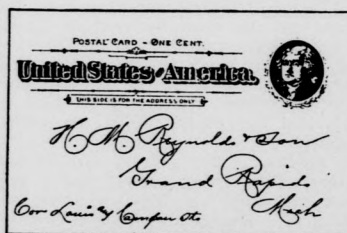 POSTAL CARD - ONE CENT.
United States of America.
THIS SIDE IS FOR THE ADDRESS ONLY
H. M. Reynolds & Son
Grand Rapids
Cor Louis & Campau Sts Mich